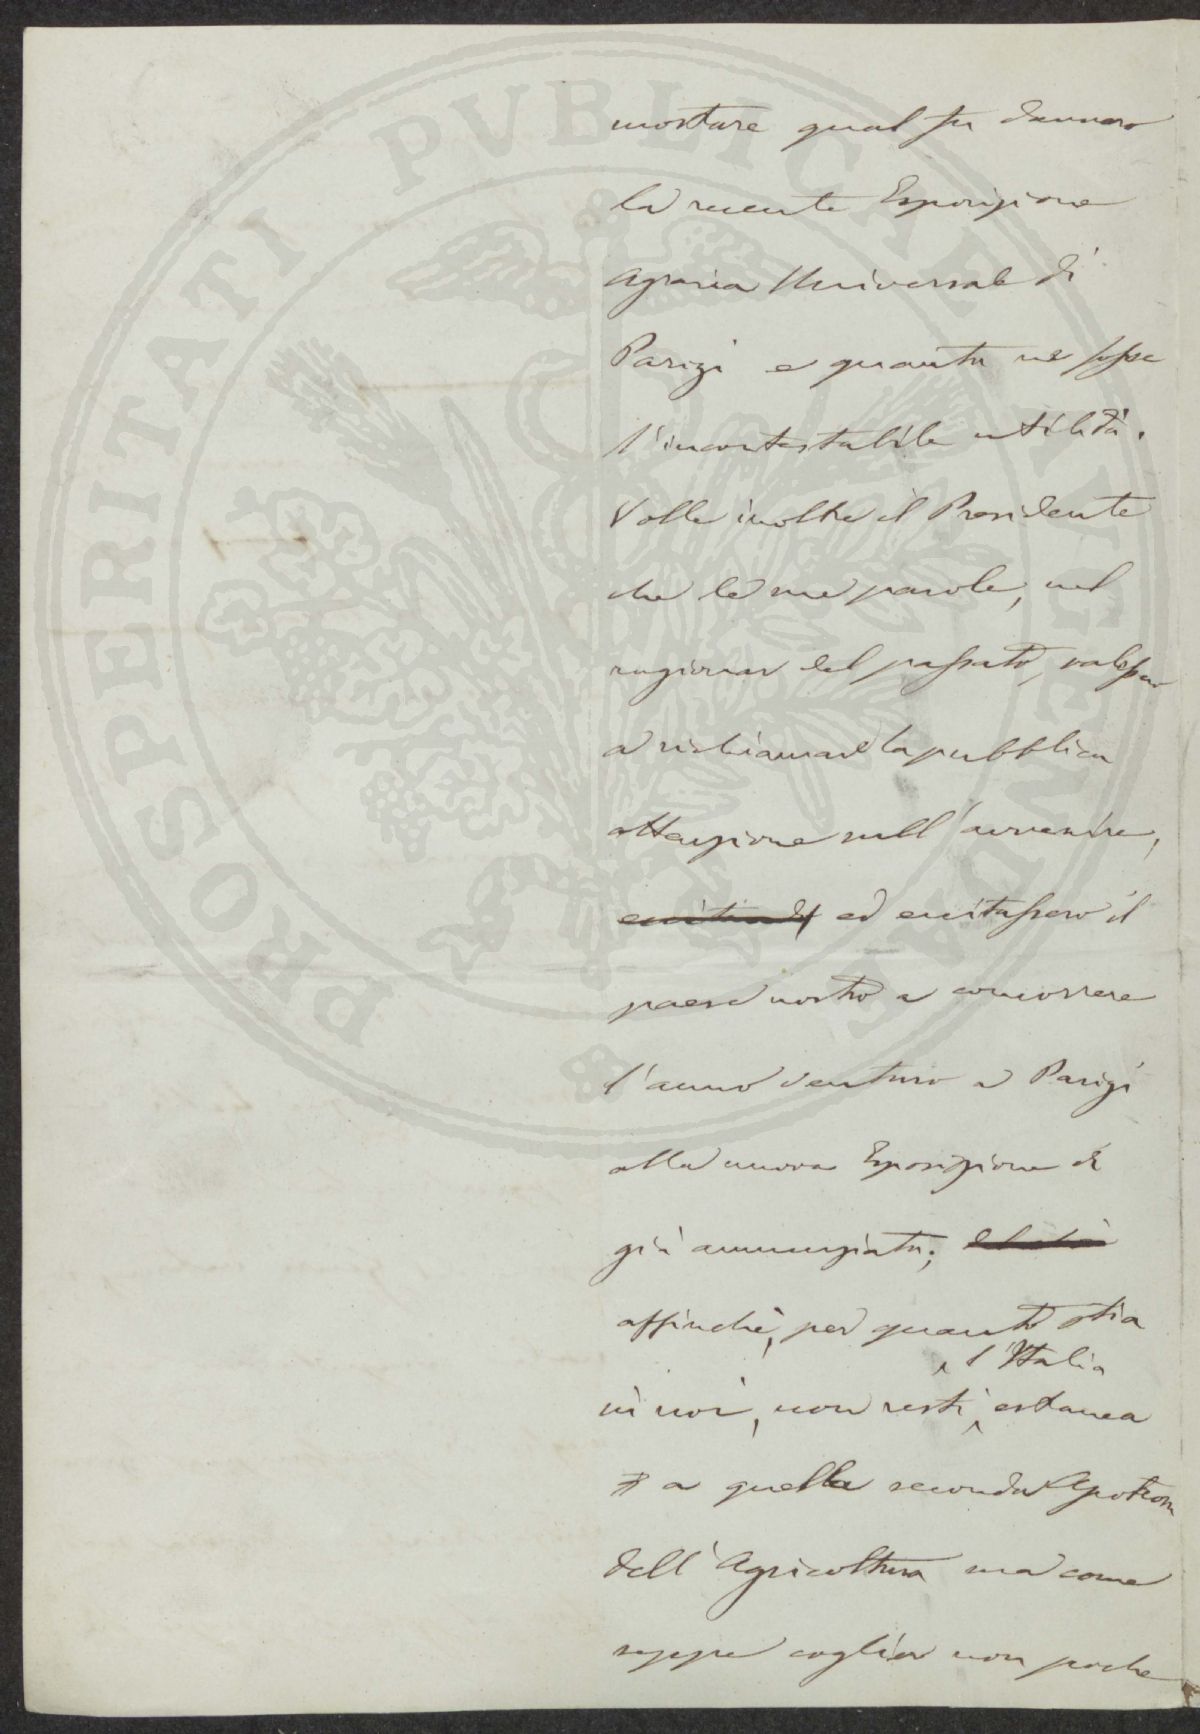 PROSPERITATI PVBLICAE AVGENDAE
mostrare qual fu davvero
la recente Esposizione
Agraria Universale di
Parigi e quanta ne fosse
l'incontestabile utilità.
Volle inoltre il Presidente
che le mie parole, nel
ragionar del passato, valesser
a richiamare la pubblica
attenzione sull'avvenire,
ed eccitassero il
paese nostro a concorrere
l'anno venturo a Parigi
alla nuova Esposizione di
già annunziata;
affinchè, per quanto stia
l'Italia
in noi, non resti estranea
a quella seconda Apoteosi
dell'Agricoltura ma come
seppe coglier non poche